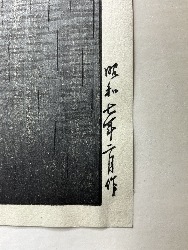 昭和七年二月作